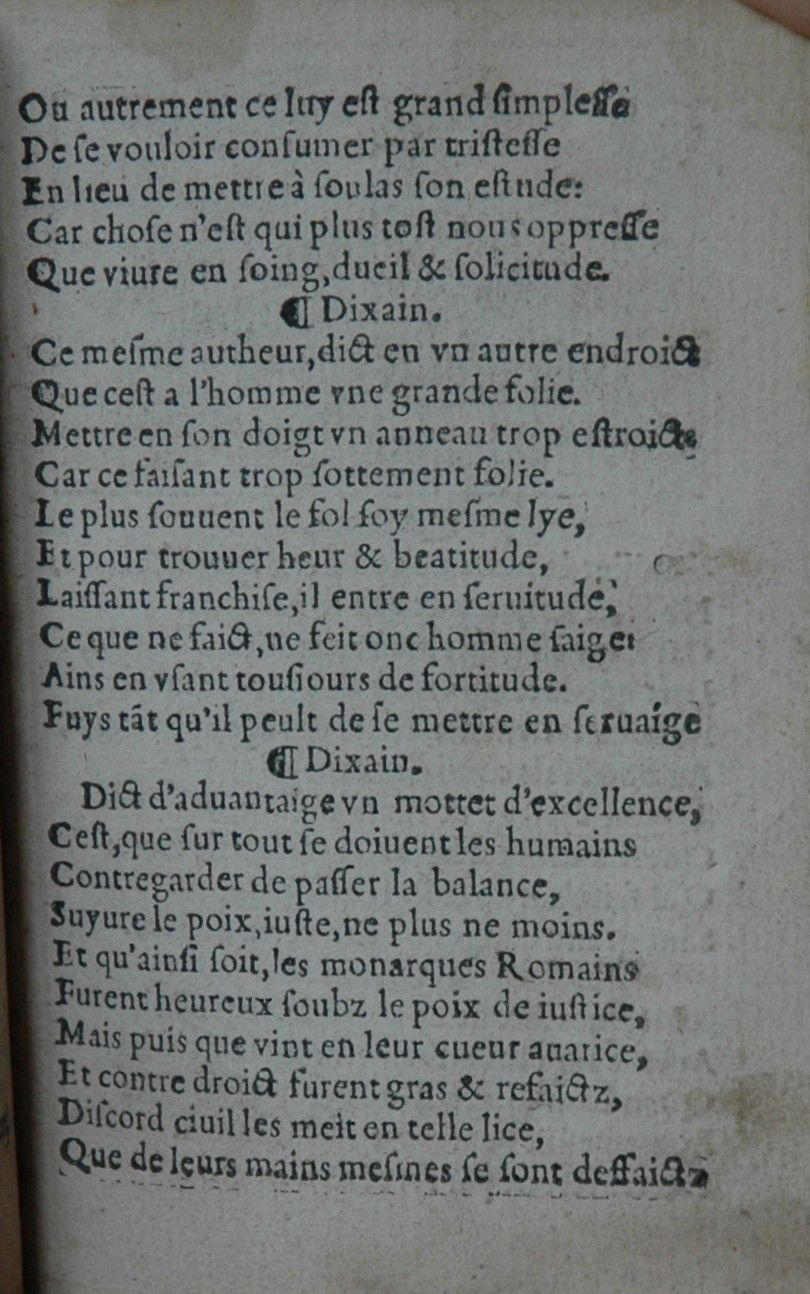 Ou autrement ce luy eſt grand ſimpleſſe
De ſe vouloir conſumer par triſteſſe
En lieu de mettre à ſoulas ſon eſtude:
Car choſe n'eſt qui plus toſt nous oppreſſe
Que viure en ſoing, dueil & ſolicitude.
¶ Dixain.
Ce meſme autheur, dict en vn autre endroict
Que ceſt a l'homme vne grande folie.
Mettre en ſon doigt vn anneau trop eſtroict:
Car ce faiſant trop ſottement folie.
Le plus ſouuent le fol ſoy meſme lye,
Et pour trouuer heur & beatitude,
Laiſſant franchiſe, il entre en ſeruitude,
Ce que ne faict, ne feit onc homme ſaige:
Ains en vſant touſiours de fortitude.
Fuys tāt qu'il peult de ſe mettre en ſeruaige
¶ Dixain.
Dict d'aduantaige vn mottet d'excellence,
Ceſt, que ſur tout ſe doiuent les humains
Contregarder de paſſer la balance,
Suyure le poix, iuſte, ne plus ne moins.
Et qu'ainſi ſoit, les monarques Romains
Furent heureux ſoubz le poix de iuſtice,
Mais puis que vint en leur cueur auarice,
Et contre droict furent gras & refaictz,
Diſcord ciuil les meit en telle lice,
Que de leurs mains meſmes ſe ſont deffaictz